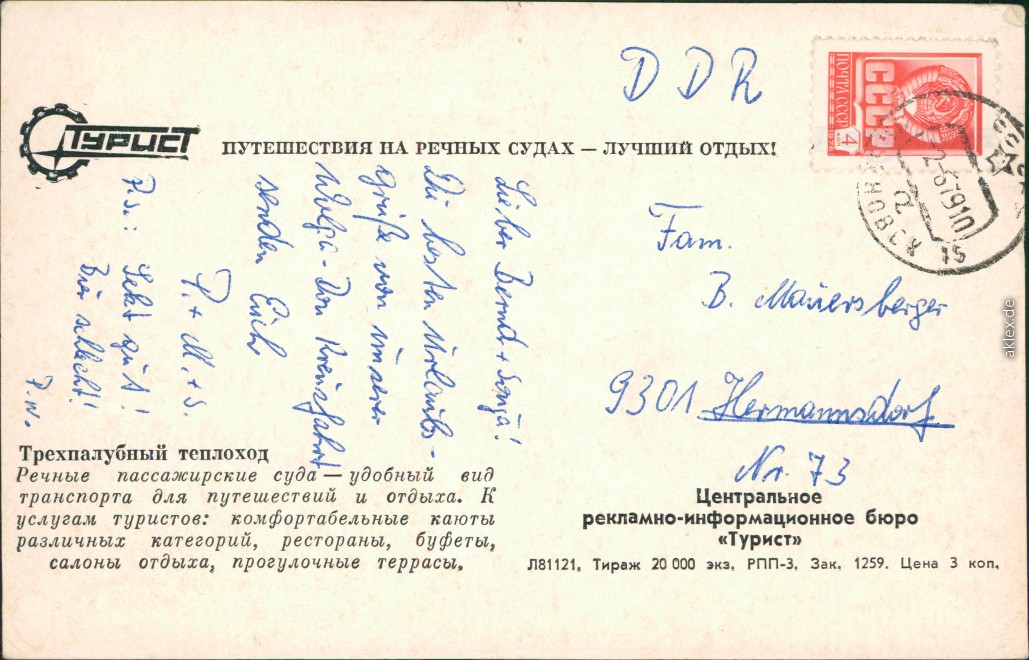 ТУРИСТ
ПУТЕШЕСТВИЯ НА РЕЧНЫХ СУДАХ — ЛУЧШИЙ ОТДЫХ!
DDR
ПОЧТА СССР
СССР
4
2-6 79 10
Lieber Bernd + Sonja!
Die besten Urlaubs-
grüße von unserer
Wolga-Don Kreuzfahrt
senden Euch
P. + M. + S.
P.S.: Sekt gut!
Bier schlecht!
P.W.
Fam.
B. Mauersberger
9301 Hermannsdorf
Nr. 73
Трехпалубный теплоход
Речные пассажирские суда — удобный вид
транспорта для путешествий и отдыха. К
услугам туристов: комфортабельные каюты
различных категорий, рестораны, буфеты,
салоны отдыха, прогулочные террасы.
Центральное
рекламно-информационное бюро
«Турист»
Л81121. Тираж 20 000 экз. РПП-3. Зак. 1259. Цена 3 коп.
aklex.de